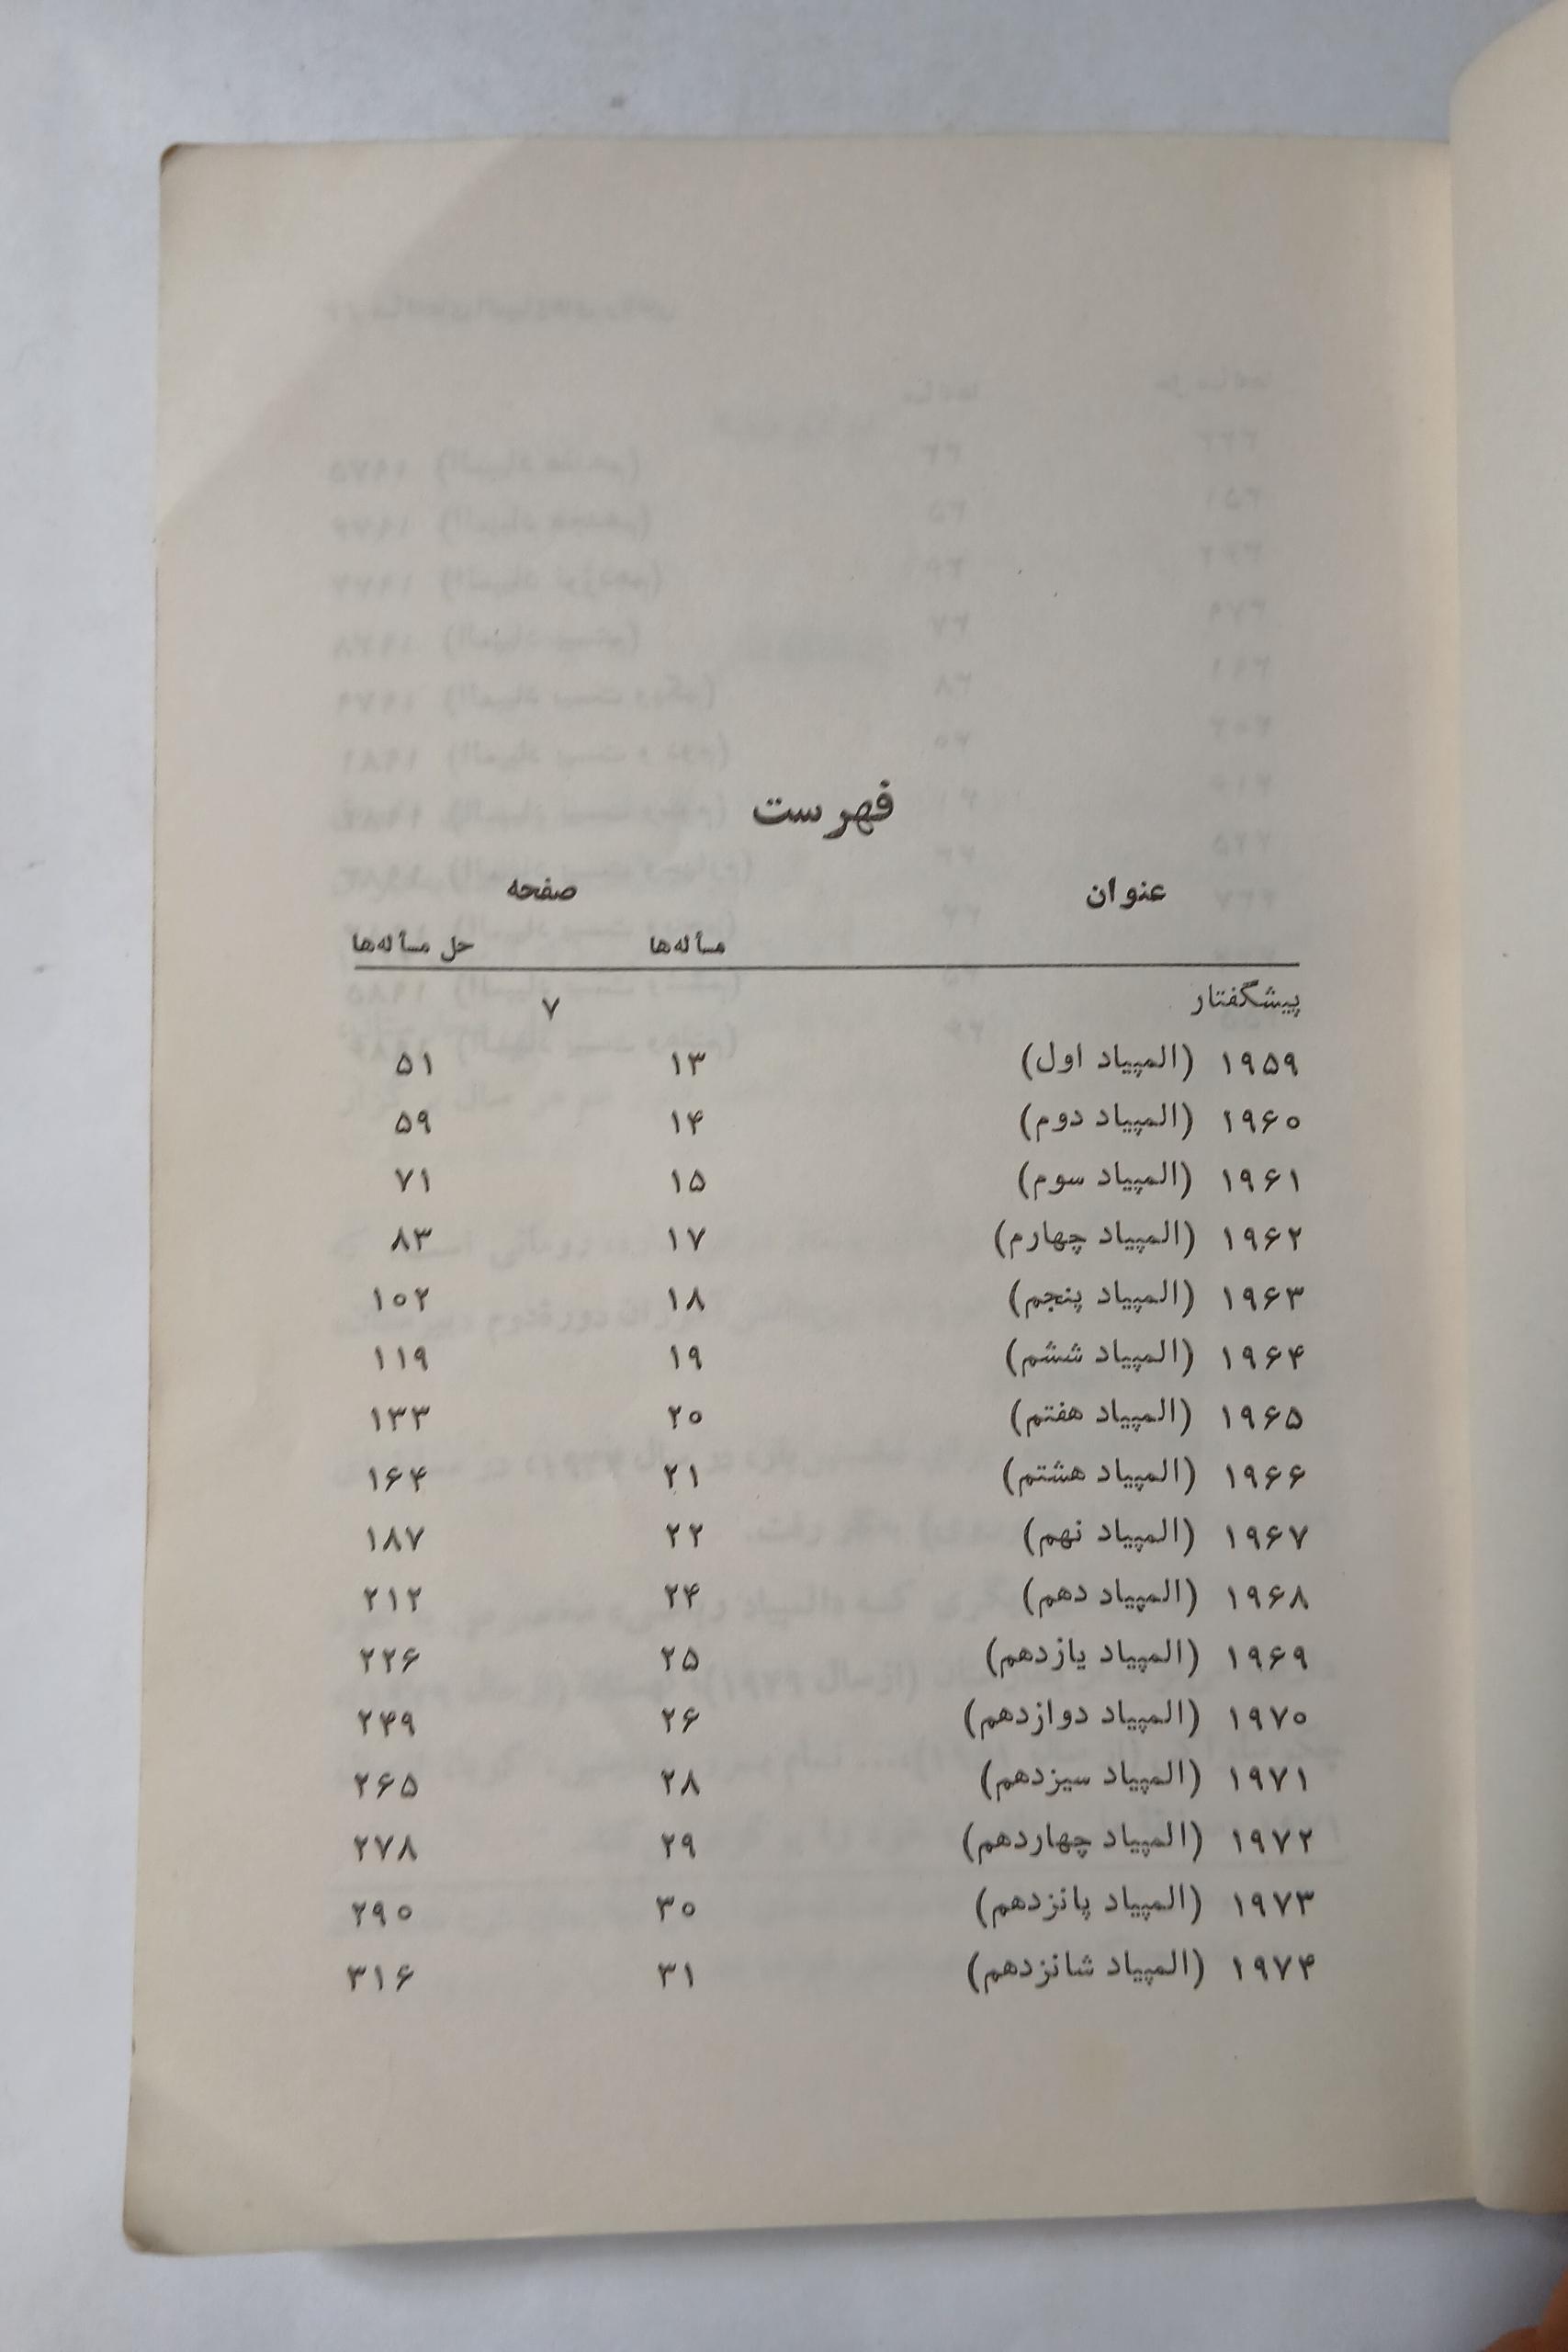 فهرست
عنوان صفحه
مسأله‌ها حل مسأله‌ها
پیشگفتار ۷
۱۹۵۹ (المپیاد اول) ۱۳ ۵۱
۱۹۶۰ (المپیاد دوم) ۱۴ ۵۹
۱۹۶۱ (المپیاد سوم) ۱۵ ۷۱
۱۹۶۲ (المپیاد چهارم) ۱۷ ۸۳
۱۹۶۳ (المپیاد پنجم) ۱۸ ۱۰۲
۱۹۶۴ (المپیاد ششم) ۱۹ ۱۱۹
۱۹۶۵ (المپیاد هفتم) ۲۰ ۱۳۳
۱۹۶۶ (المپیاد هشتم) ۲۱ ۱۶۴
۱۹۶۷ (المپیاد نهم) ۲۲ ۱۸۷
۱۹۶۸ (المپیاد دهم) ۲۴ ۲۱۲
۱۹۶۹ (المپیاد یازدهم) ۲۵ ۲۲۶
۱۹۷۰ (المپیاد دوازدهم) ۲۶ ۲۴۹
۱۹۷۱ (المپیاد سیزدهم) ۲۸ ۲۶۵
۱۹۷۲ (المپیاد چهاردهم) ۲۹ ۲۷۸
۱۹۷۳ (المپیاد پانزدهم) ۳۰ ۲۹۰
۱۹۷۴ (المپیاد شانزدهم) ۳۱ ۳۱۶